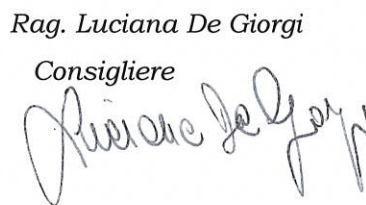 Rag. Luciana De Giorgi
Consigliere
Luciana De Giorgi